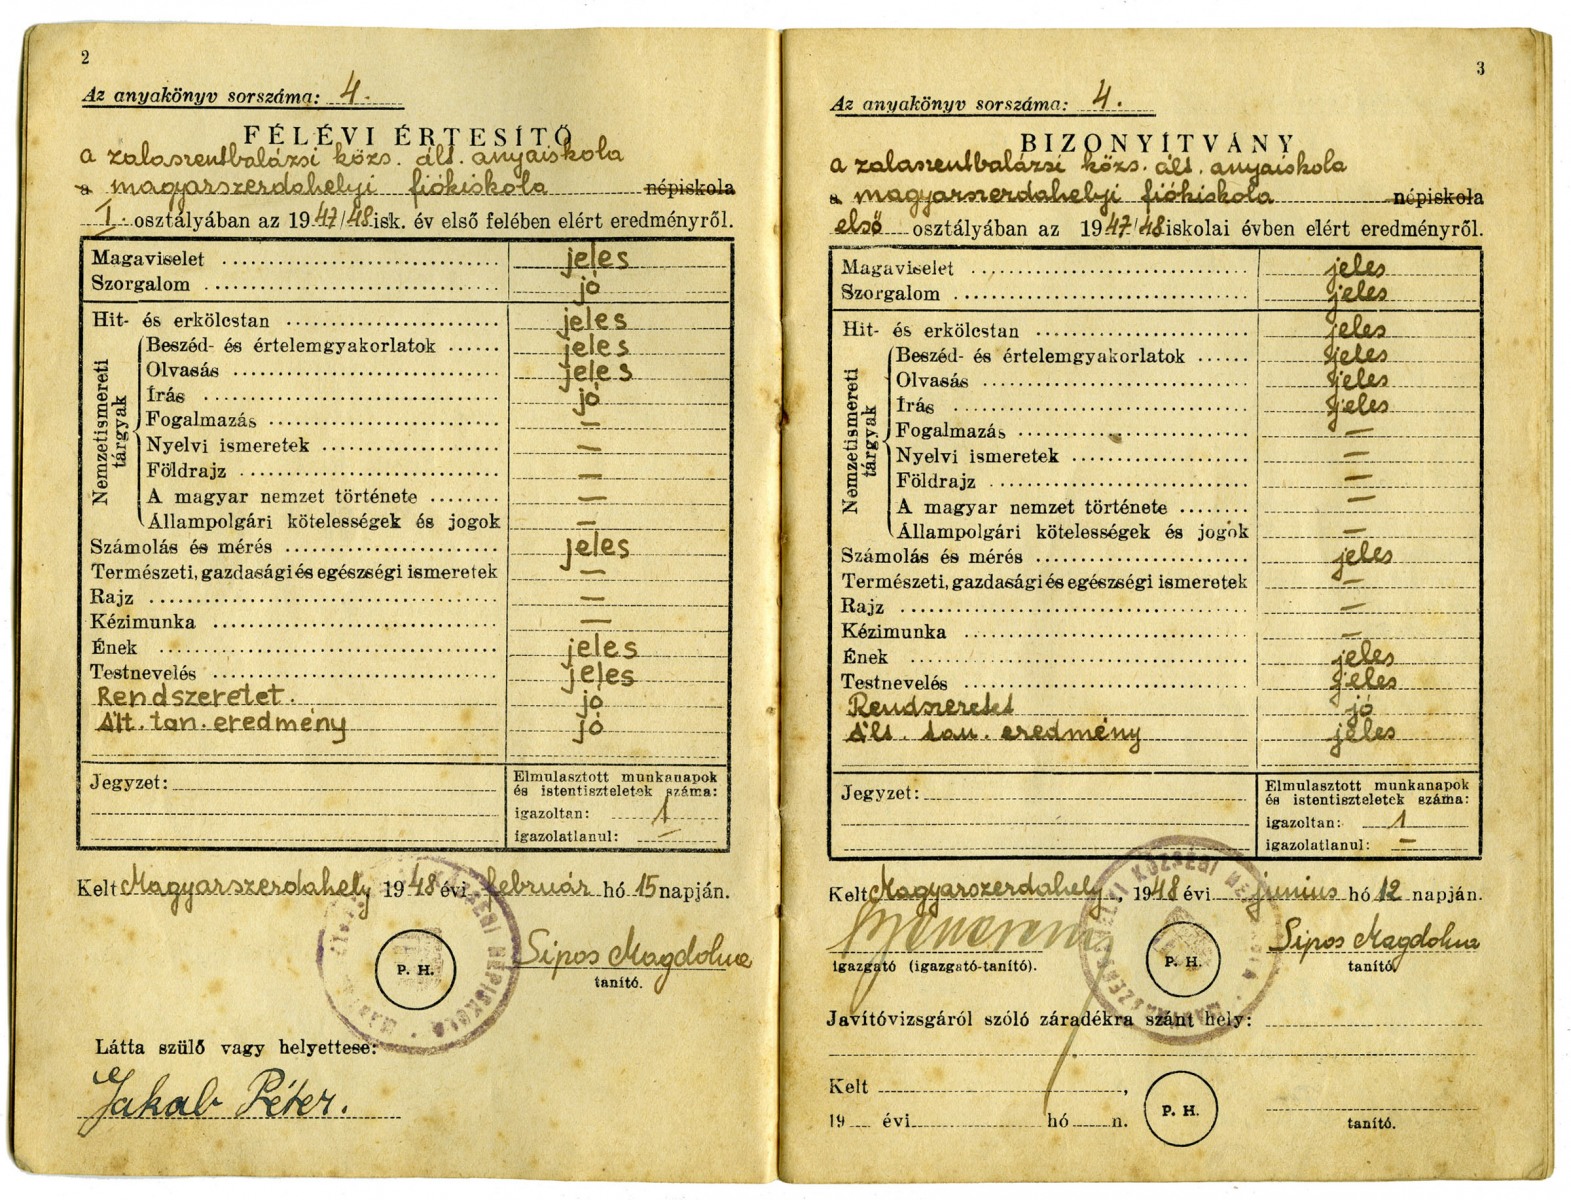 2
Az anyakönyv sorszáma: 4.
FÉLÉVI ÉRTESÍTŐ
a zalaszentbalázsi közs. ált. anyaiskola
a magyarszerdahelyi fiókiskola népiskola
I. osztályában az 1947/48 isk. év első felében elért eredményről.
Magaviselet jeles
Szorgalom jó
Hit- és erkölcstan jeles
Nemzetismereti tárgyak
Beszéd- és értelemgyakorlatok jeles
Olvasás jeles
Írás jó
Fogalmazás —
Nyelvi ismeretek —
Földrajz —
A magyar nemzet története —
Állampolgári kötelességek és jogok —
Számolás és mérés jeles
Természeti, gazdasági és egészségi ismeretek —
Rajz —
Kézimunka —
Ének jeles
Testnevelés jeles
Rendszeretet. jó
Ált. tan. eredmény jó
Jegyzet:
Elmulasztott munkanapok
és istentiszteletek száma:
igazoltan: 1
igazolatlanul: —
Kelt Magyarszerdahely 1948 évi február hó 15 napján.
P. H.
Sipos Magdolna
tanító.
Látta szülő vagy helyettese:
Jakab Péter.
3
Az anyakönyv sorszáma: 4.
BIZONYÍTVÁNY
a zalaszentbalázsi közs. ált. anyaiskola
a magyarszerdahelyi fiókiskola népiskola
első osztályában az 1947/48 iskolai évben elért eredményről.
Magaviselet jeles
Szorgalom jeles
Hit- és erkölcstan jeles
Nemzetismereti tárgyak
Beszéd- és értelemgyakorlatok jeles
Olvasás jeles
Írás jeles
Fogalmazás —
Nyelvi ismeretek —
Földrajz —
A magyar nemzet története —
Állampolgári kötelességek és jogok —
Számolás és mérés jeles
Természeti, gazdasági és egészségi ismeretek —
Rajz —
Kézimunka —
Ének jeles
Testnevelés jeles
Rendszeretet jó
Ált. tan. eredmény jeles
Jegyzet:
Elmulasztott munkanapok
és istentiszteletek száma:
igazoltan: 1
igazolatlanul: —
Kelt Magyarszerdahely, 1948 évi junius hó 12 napján.
igazgató (igazgató-tanító).
P. H.
Sipos Magdolna
tanító.
Javítóvizsgáról szóló záradékra szánt hely:
Kelt ,
19 évi hó n.
P. H.
tanító.